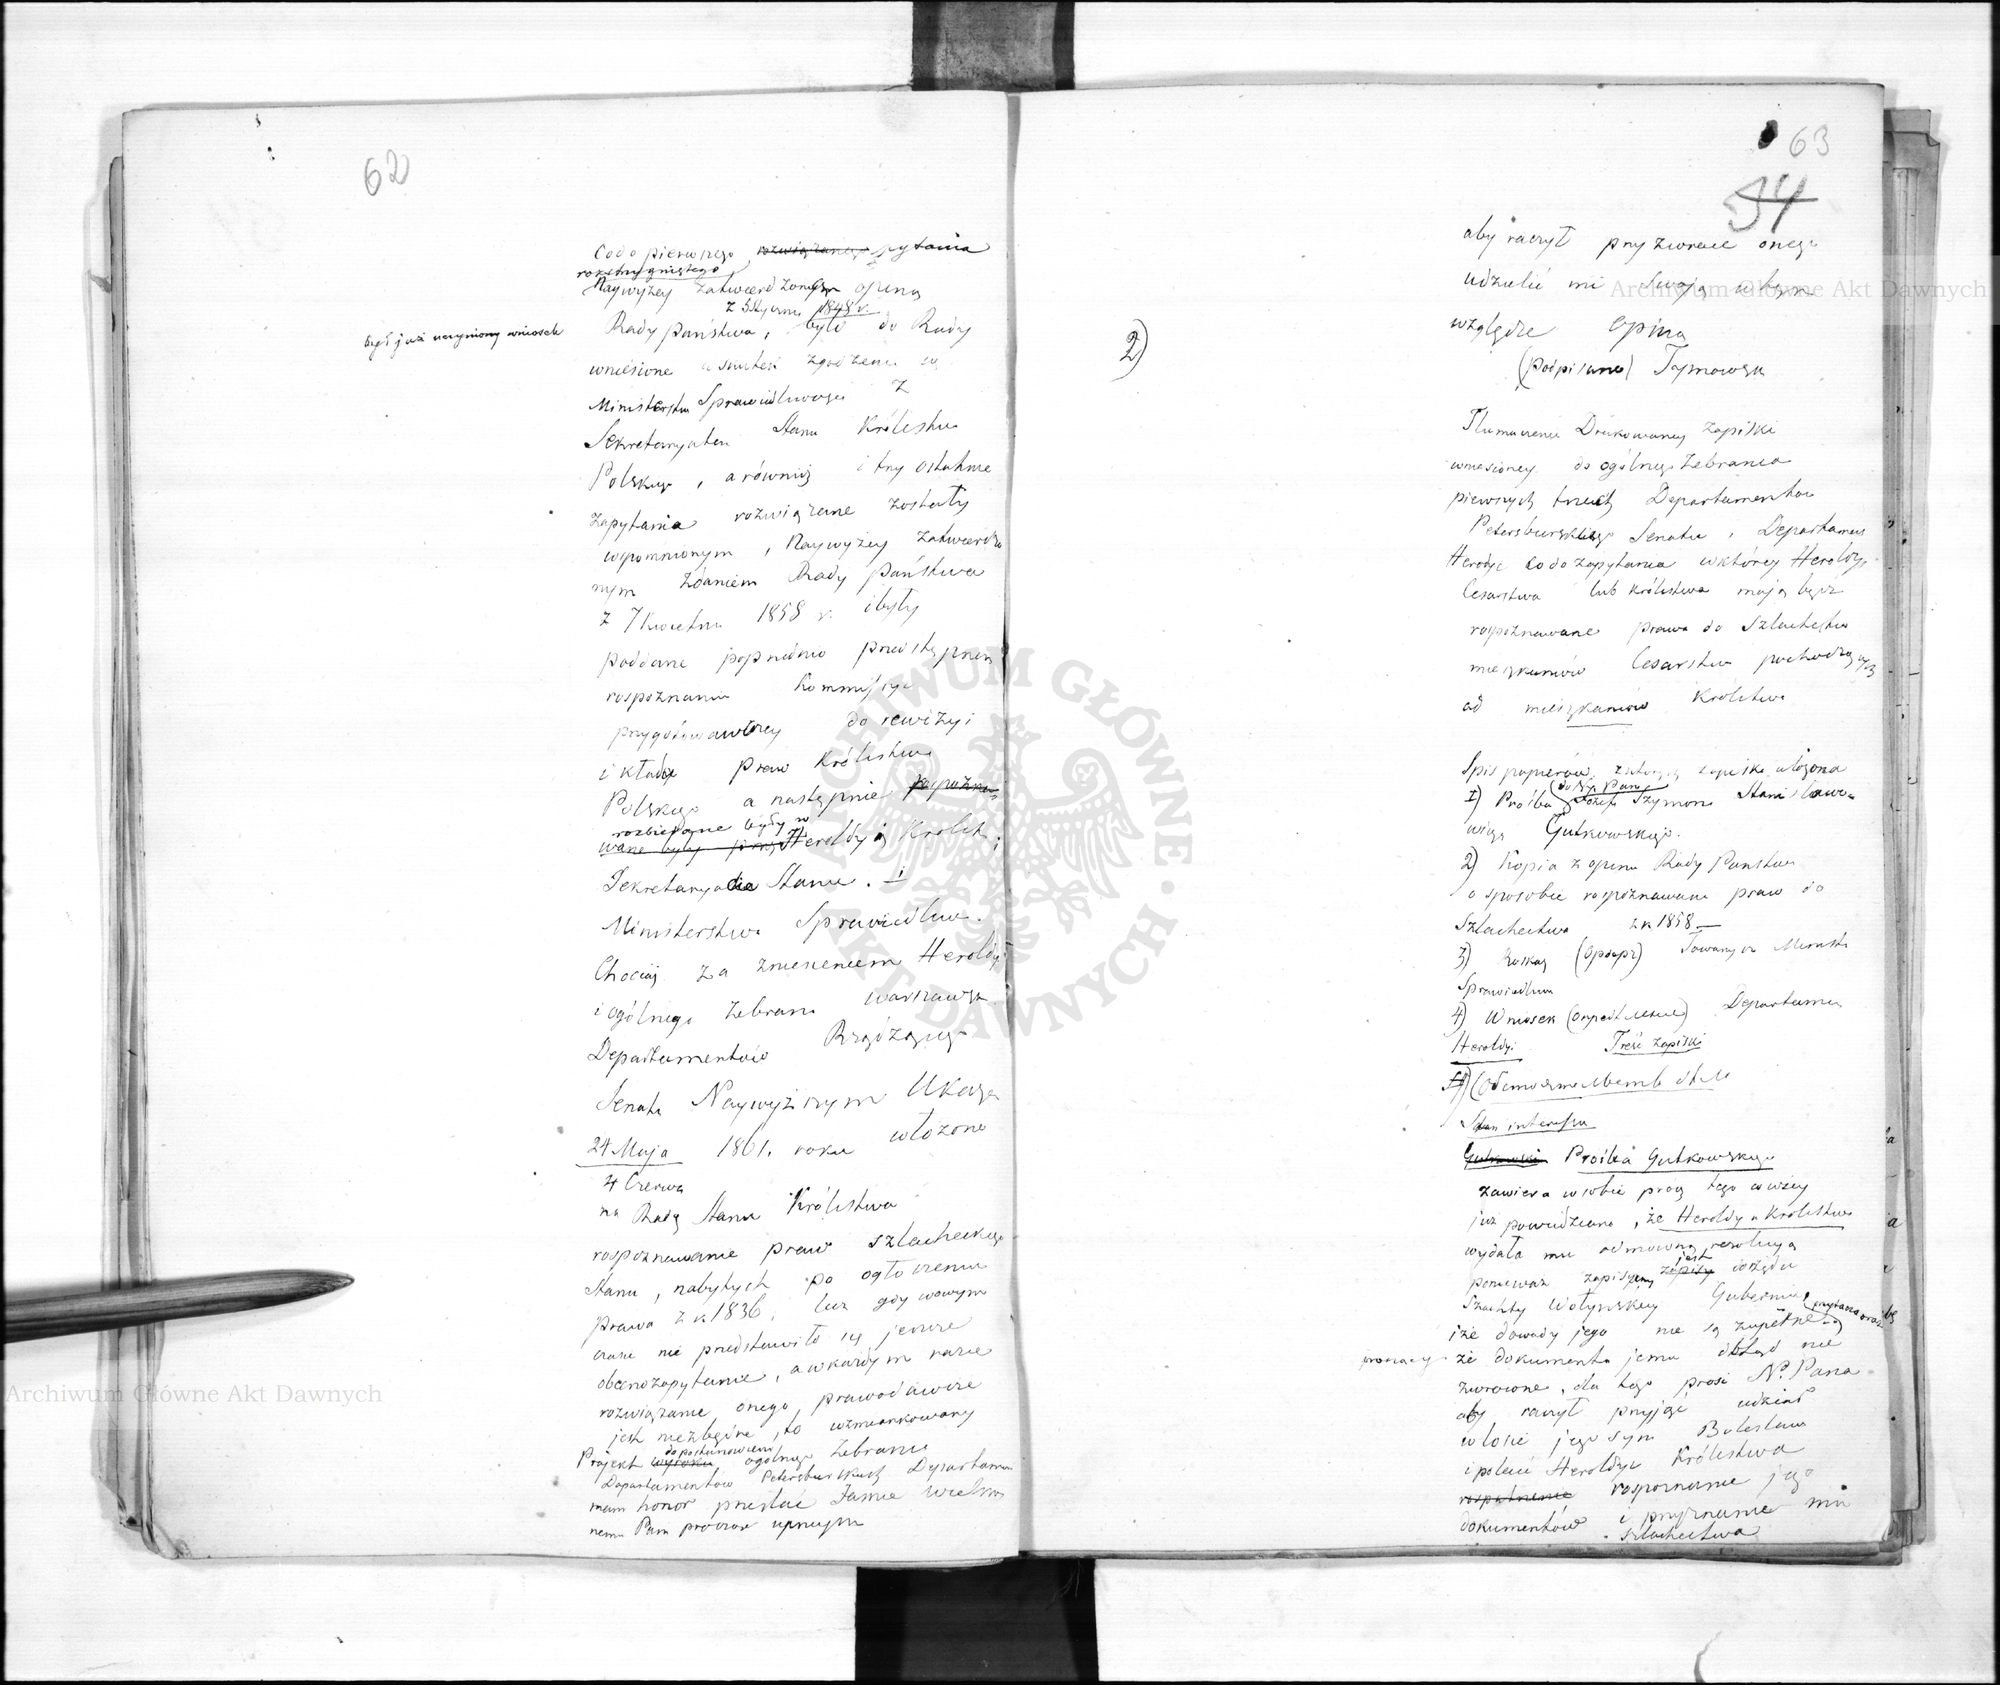 62
Co do pierwszego rozwiązanego pytania
rozstrzygniętego
Naywyżey zatwierdzoną opinią
z 5 Stycznia 1848 r.
Rady Państwa, było do Rady
był już uczyniony wniosek
wniesione w skutek zgodzenia się
Ministerstwa Sprawiedliwości z
Sekretaryatem Stanu Królestwa
Polskiego, a również i trzy ostatnie
zapytania rozwiązane zostały
wspomnionym, Naywyżey zatwierdzo
nym zdaniem Rady Państwa
z 7 Kwietnia 1858 r. i były
poddane poprzednio przedstępnemu
rozpoznaniu Kommissyi
przygotowawczey do rewizyi
i układu praw Królestwa
Polskiego a następnie rozpozna
rozbierane były w
wane były przez Heroldyą Królest.
Sekretaryacie Stanu. i
Ministerstwie Sprawiedliw.
Chociaż za zniesieniem Heroldyi
i ogólnego Zebrania Warszawsk.
Departamentów Rządzącego
Senatu Naywyższym Ukazem
24 Maja 1861. roku włożono
4 Czerwca
na Radę Stanu Królestwa
rozpoznawanie praw szlacheckiego
Stanu, nabytych po ogłoszeniu
prawa z r. 1836, lecz gdy wowym
czasie nie przedstawiło się jeszcze
obecne zapytanie, a w każdym razie
rozwiązanie onego, prawodawcze
jest niezbędne, to wzmiankowany
do postanowienia
Projekt wyroku ogólnego Zebrania
Departamentów Petersburskich Departamen
mam honor przesłać Jaśnie Wielmoż
nemu Panu prosząc uprzejmie
63
54
aby raczył przy zwrocie onego
udzielić mi Swoją w tym
względzie opinią
(podpisano) Tymowski
2)
Tłumaczenie Drukowaney zapiski
wniesioney do ogólnego Zebrania
pierwszych trzech Departamentów
Petersburskiego Senatu i Departamen
Heroldyi co do zapytania w którey Heroldyi
Cesarstwa lub Królestwa mają być
rozpoznawane prawa do Szlachectwa
mieszkańców Cesarstwa pochodzących
od mieszkańców Królestwa
Spis papierów z których zapiska ułożona
1) Prośba Józefa Szymona Stanisława
do Nja Pana
wicza Gutkowskiego.
2) Kopia z opinii Rady Państwa
o sposobie rozpoznawania praw do
Szlachectwa z r. 1858
3) Towarzysza Ministra
Sprawiedliw
4) Wniosek Departamen
Heroldyi Treść zapiski
Stan interesu
Gutkowski Prośba Gutkowskiego
zawiera w sobie prócz tego o czem
już powiedziano, że Heroldya Królestwa
wydała mu odmowną rezolucyą
ponieważ zapisany jest zapisy do rzędu
Szlachty Wołyńskiey Gubernii,
i że dowody jego nie są zupełne
że dokumenta jemu dotąd nie
zwrócone, dla tego prosi N. Pana
aby raczył przyjąć udział
w losie jego syn Bolesława
i polecić Heroldyi Królestwa
rozpatrzenie rozpoznanie jego
dokumentów i przyznanie mu
szlachectwa
Archiwum Główne Akt Dawnych
Archiwum Główne Akt Dawnych
ARCHIWUM GŁÓWNE AKT DAWNYCH